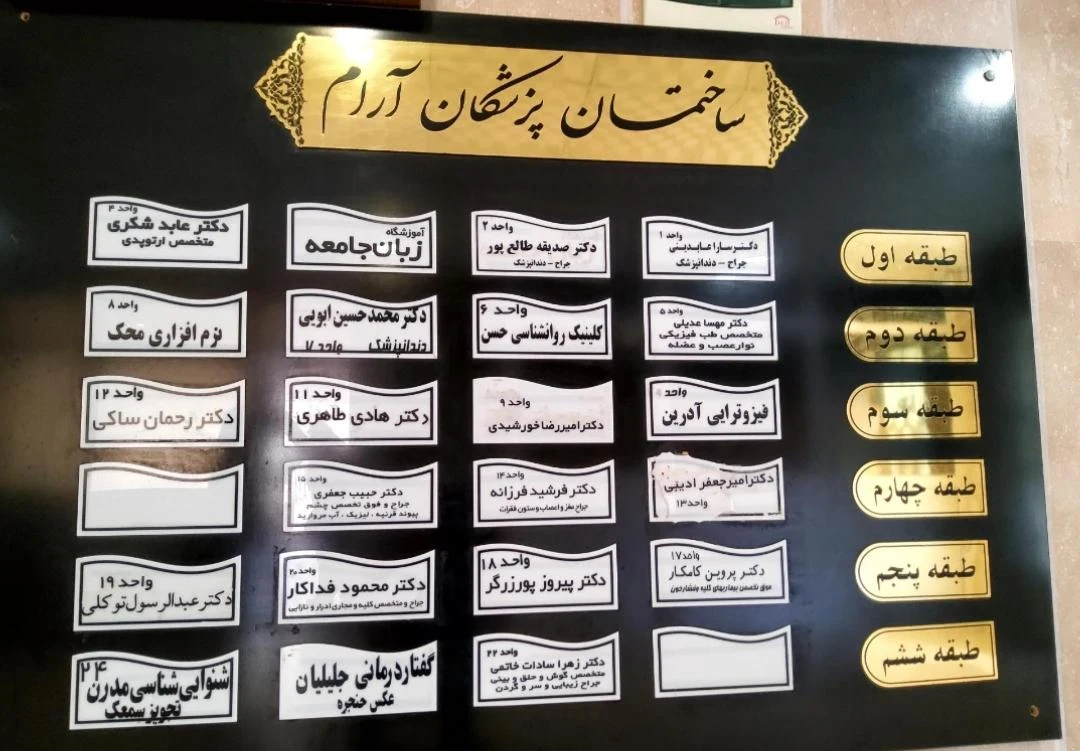 ساختمان پزشکان آرام
طبقه اول
واحد ۱
دکتر سارا عابدینی
جراح - دندانپزشک
واحد ۲
دکتر صدیقه طالع پور
جراح - دندانپزشک
آموزشگاه
زبان جامعه
واحد ۴
دکتر عابد شکری
متخصص ارتوپدی
طبقه دوم
واحد ۵
دکتر مهسا عدیلی
متخصص طب فیزیکی
نوار عصب و عضله
واحد ۶
کلینیک روانشناسی حسن
دکتر محمدحسین ابویی
دندانپزشک واحد ۷
واحد ۸
نرم افزاری محک
طبقه سوم
واحد
فیزوترایی آدرین
واحد ۹
دکتر امیررضا خورشیدی
واحد ۱۱
دکتر هادی طاهری
واحد ۱۲
دکتر رحمان ساکی
طبقه چهارم
دکتر امیر جعفر ادیبی
واحد ۱۳
واحد ۱۴
دکتر فرشید فرزانه
جراح مغز و اعصاب و ستون فقرات
واحد ۱۵
دکتر حبیب جعفری
جراح و فوق تخصص چشم
پیوند قرنیه ، لیزیک ، آب مروارید
طبقه پنجم
واحد ۱۷
دکتر پروین کامکار
فوق تخصص بیماریهای کلیه و فشارخون
واحد ۱۸
دکتر پیروز پورزرگر
واحد ۲۰
دکتر محمود فداکار
جراح و متخصص کلیه و مجاری ادرار و نازایی
واحد ۱۹
دکتر عبدالرسول توکلی
طبقه ششم
واحد ۲۲
دکتر زهرا سادات خاتمی
متخصص گوش و حلق و بینی
جراح زیبایی و سر و گردن
گفتاردرمانی جلیلیان
عکس حنجره
۲۴
شنوایی شناسی مدرن
تجویز سمعک